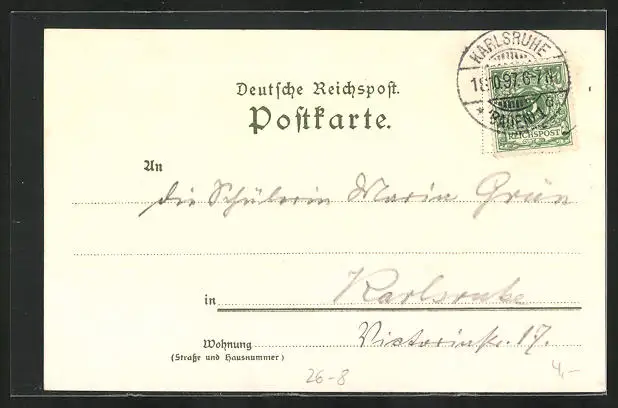 KARLSRUHE
18.10.97.6-7N.
(BADEN) 1
REICHSPOST
Deutsche Reichspost.
Postkarte.
An
die Schülerin Maria Grün
in Karlsruhe
Wohnung Victoriastr. 17.
(Straße und Hausnummer)
26-8
4,-